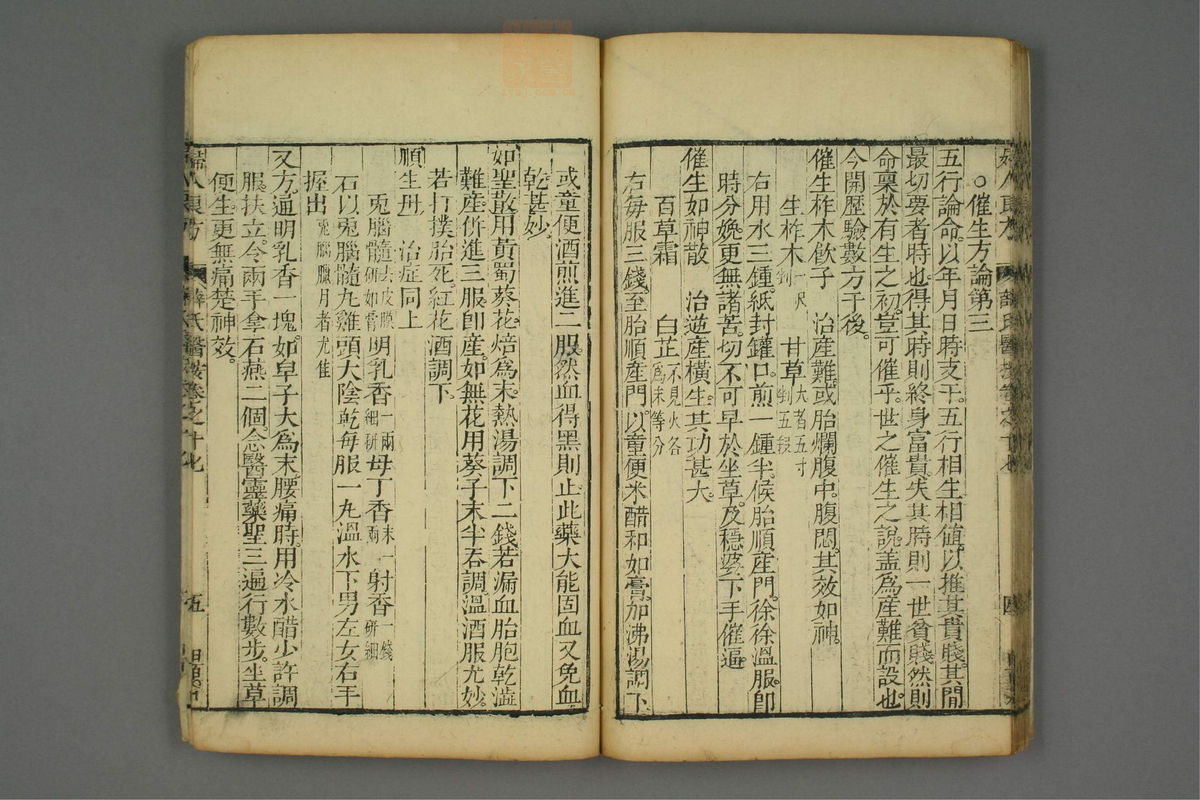 ○催生方論第三
五行論命。以年月日時支干。五行相生相値。以推其貴賤。其間
最切要者時也。得其時則終身富貴。失其時則一世貧賤。然則
命稟於有生之初。豈可催乎。世之催生之說。盖為產難而設也。
今開歷驗數方于後。
催生柞木飲子　治產難。或胎爛腹中。腹悶。其效如神。
生柞木一尺剉　甘草大者五寸剉五段
右用水三鍾。紙封罐口。煎一鍾半。候胎順產門。徐徐溫服。卽
時分娩。更無諸苦。切不可早於坐草。及穩婆下手催逼。
催生如神散　治逆產橫生。其功甚大。
百草霜　白芷不見火各等分為末
右每服三錢。至胎順產門。以童便米醋和如膏。加沸湯調下。
或童便酒煎進二服。然血得黑則止。此藥大能固血。又免血
乾甚妙。
如聖散。用黃蜀葵花。焙為末。熱湯調下二錢。若漏血胎胞乾澁
難產。倂進三服卽產。如無花用葵子末半吞。調溫酒服尤妙。
若打撲胎死。紅花酒調下。
順生丹　治症同上
兎腦髓去皮膜研如膏明乳香一兩細研母丁香末一兩射香一錢研細
石以兎腦髓丸雞頭大陰乾每服一丸溫水下男左女右手
握出兎腦臘月者尤佳
又方。通明乳香一塊。如皁子大為末。腰痛時。用冷水醋少許調
服。扶立。令兩手拿石燕二個。念醫靈藥聖三遍。行數步。坐草
便生。更無痛楚神效。
婦人良方
薛氏醫按卷之十七
五
四